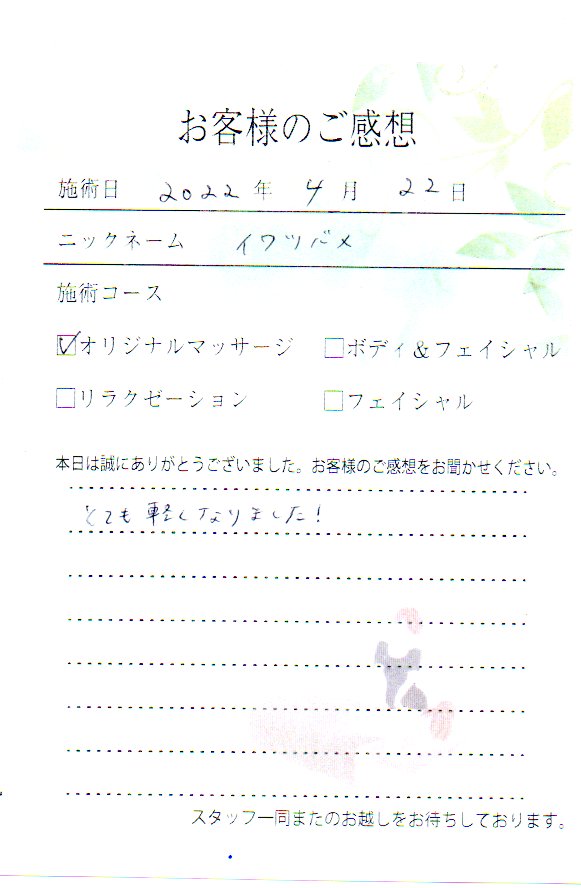 お客様のご感想
施術日 2022年 4月 22日
ニックネーム イワツバメ
施術コース
☑オリジナルマッサージ □ボディ&フェイシャル
□リラクゼーション □フェイシャル
本日は誠にありがとうございました。お客様のご感想をお聞かせください。
とても軽くなりました!
スタッフ一同またのお越しをお待ちしております。